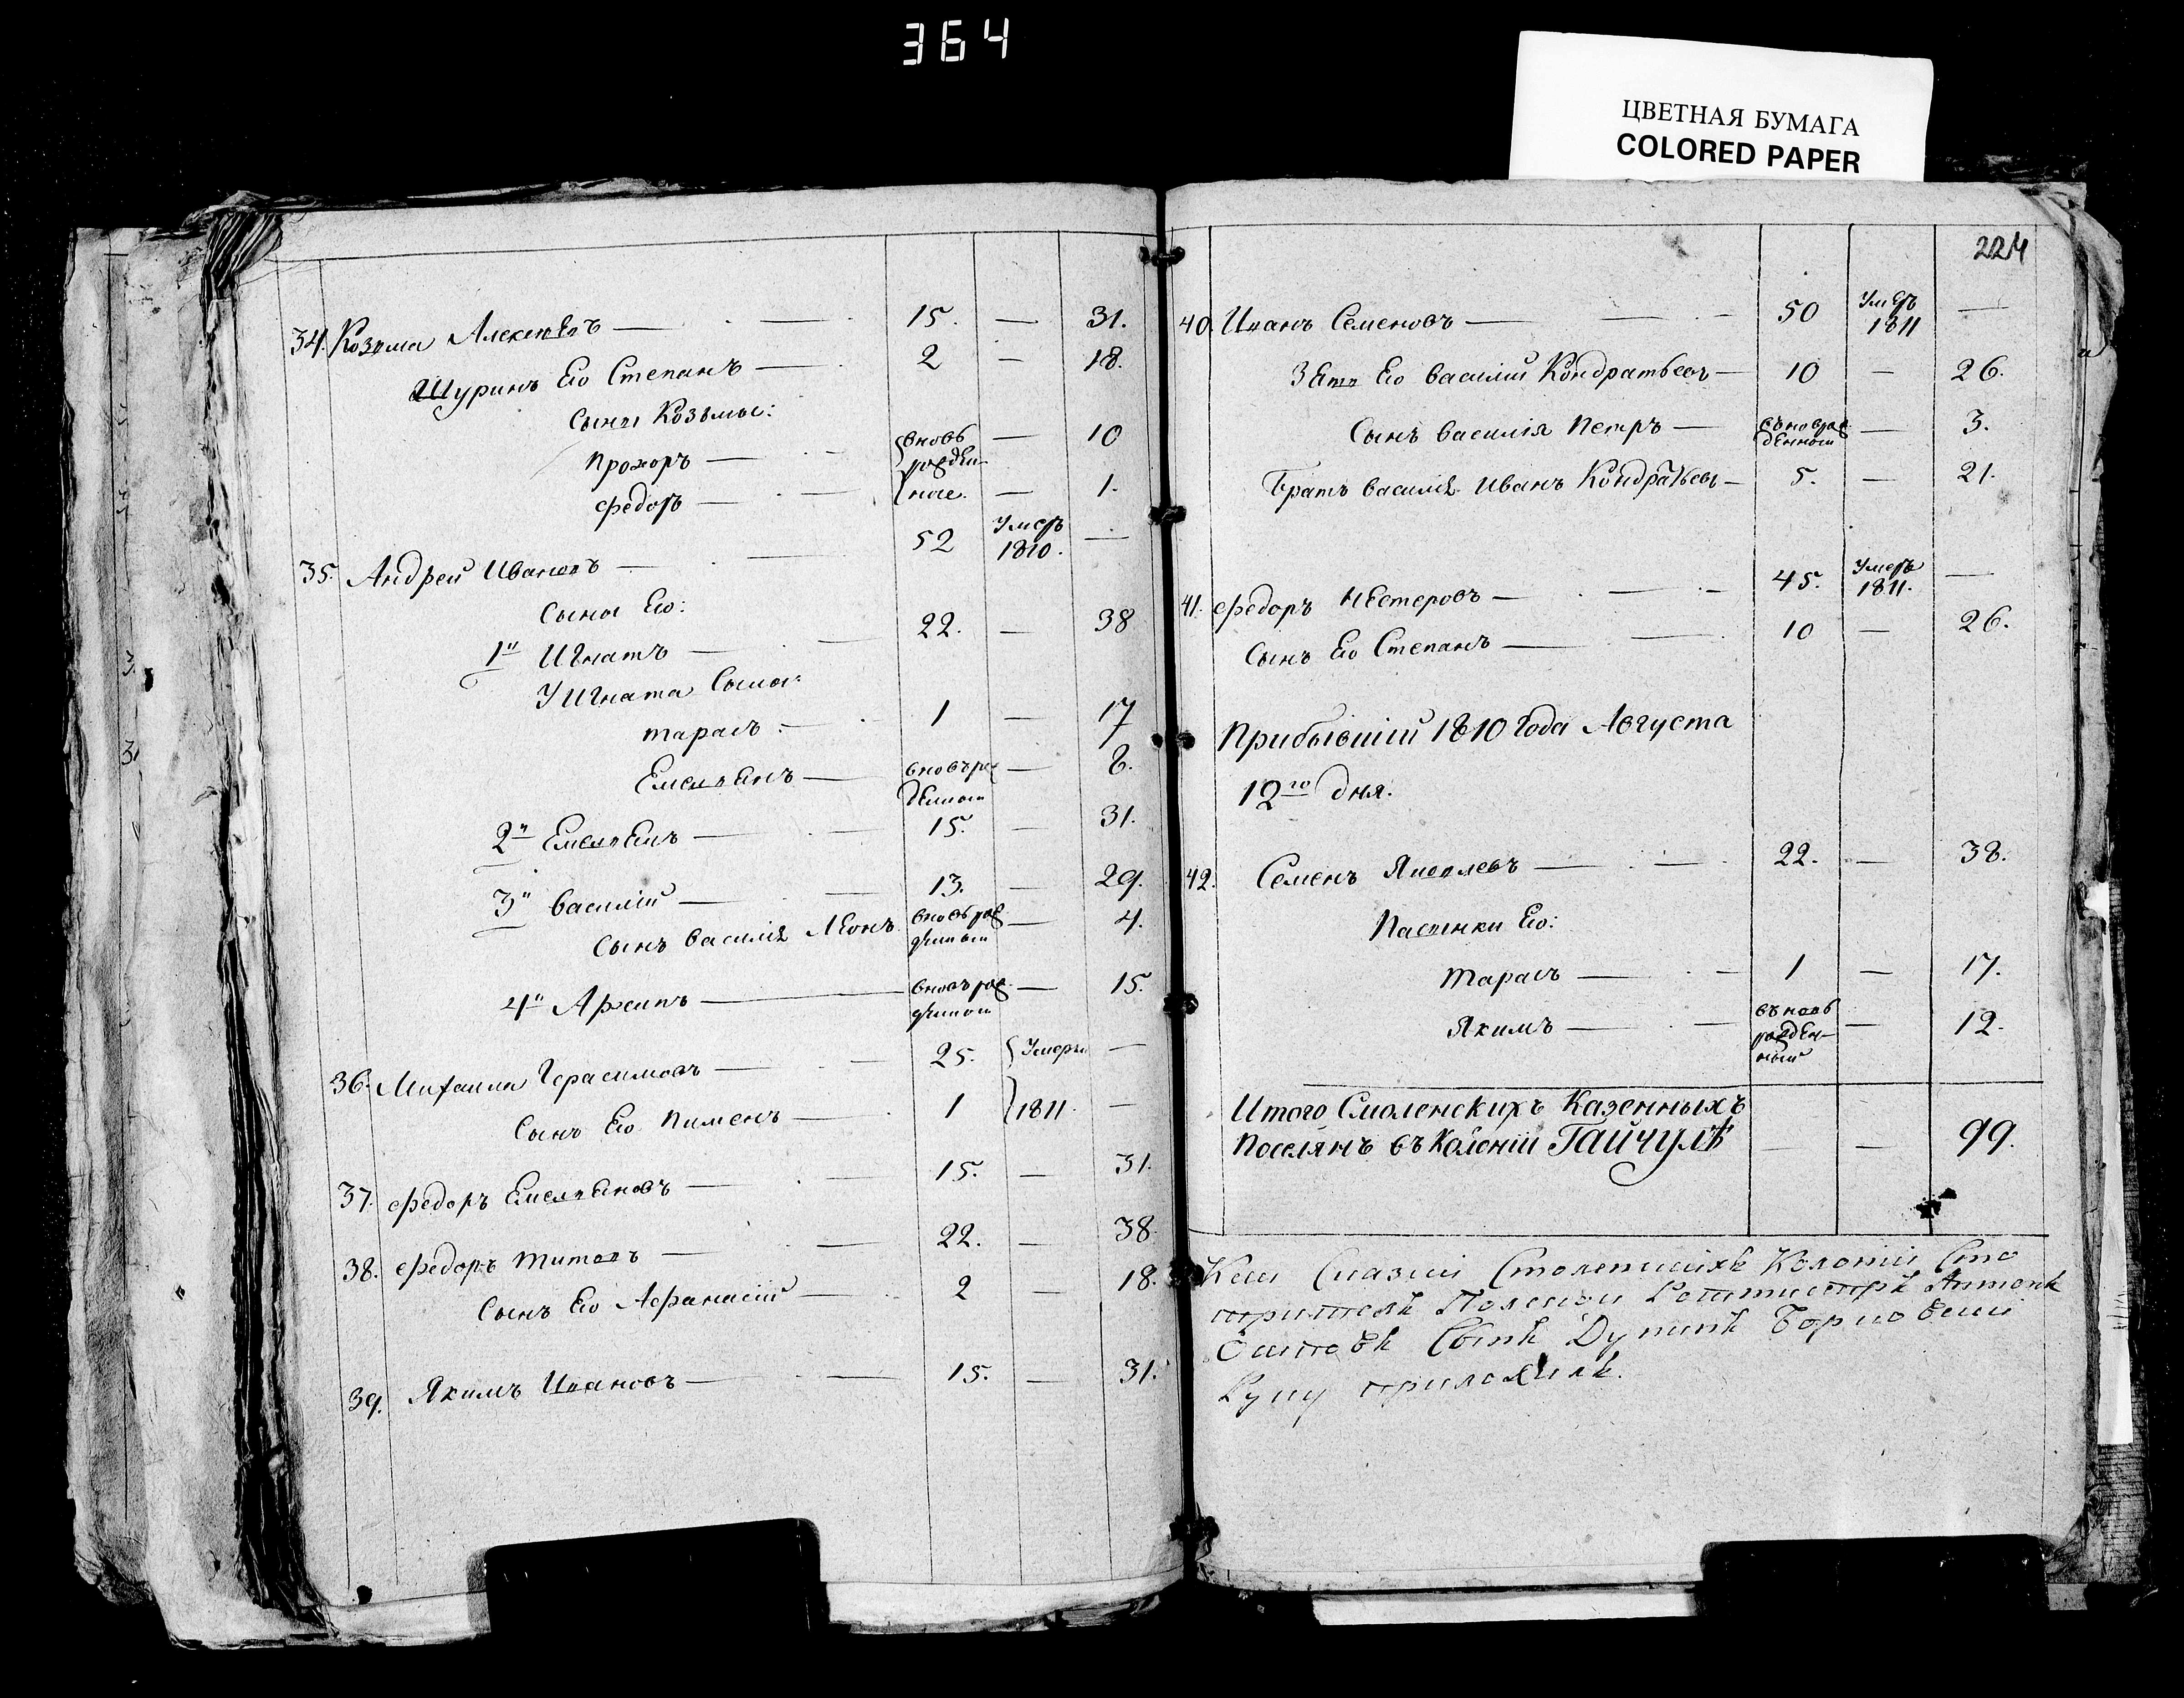 364
ЦВЕТНАЯ БУМАГА
COLORED PAPER
34. Козьма Алексѣевъ — 15. — 31.
Шуринъ Его Степанъ — 2 — 18.
Сыны Козьмы:
Прохоръ — вновь — 10
Федоръ — рожден-ные. — 1.
35. Андрей Ивановъ — 52 Умеръ 1810. —
Сыны Его:
1й Игнатъ — 22. — 38
У Игната Сыны:
Тарасъ — 1 — 17
Емельянъ — вновьрожденной — 8.
2й Емельянъ — 15. — 31.
3й Василій — 13. — 29.
Сынъ Василія Леонъ вновьрожденный — 4.
4й Архипъ — вновьрожденной — 15.
36. Михаила Герасимовъ — 25. Умерли —
Сынъ Его Пименъ — 1 1811. —
37. Федоръ Емельяновъ — 15. — 31.
38. Федоръ Титовъ — 22. — 38.
Сынъ Его Афанасій — 2 — 18.
39. Якимъ Ивановъ — 15. — 31.
224
40. Иванъ Семеновъ — 50 Умеръ 1811 —
Зять Его Василій Кондратьевъ — 10 — 26.
Сынъ Василія Петръ — 3.
Братъ Василія Иванъ Кондратьевъ — 5. — 21.
41. Федоръ Нестеровъ — 45. Умеръ 1811. —
Сынъ Его Степанъ — 10 — 26.
Прибывшій 1810 Года Августа
12го дня.
42. Семенъ Яковлевъ — 22. — 38.
Пасынки Его:
Тарасъ — 1 — 17.
Якимъ — въновь рожден-ный — 12.
Итого Смоленскихъ Казенныхъ
Поселянъ въ Колоніи Гайчулѣ — — 99.
Колоніи Смо
Антонъ
Сынъ
Руку приложилъ.